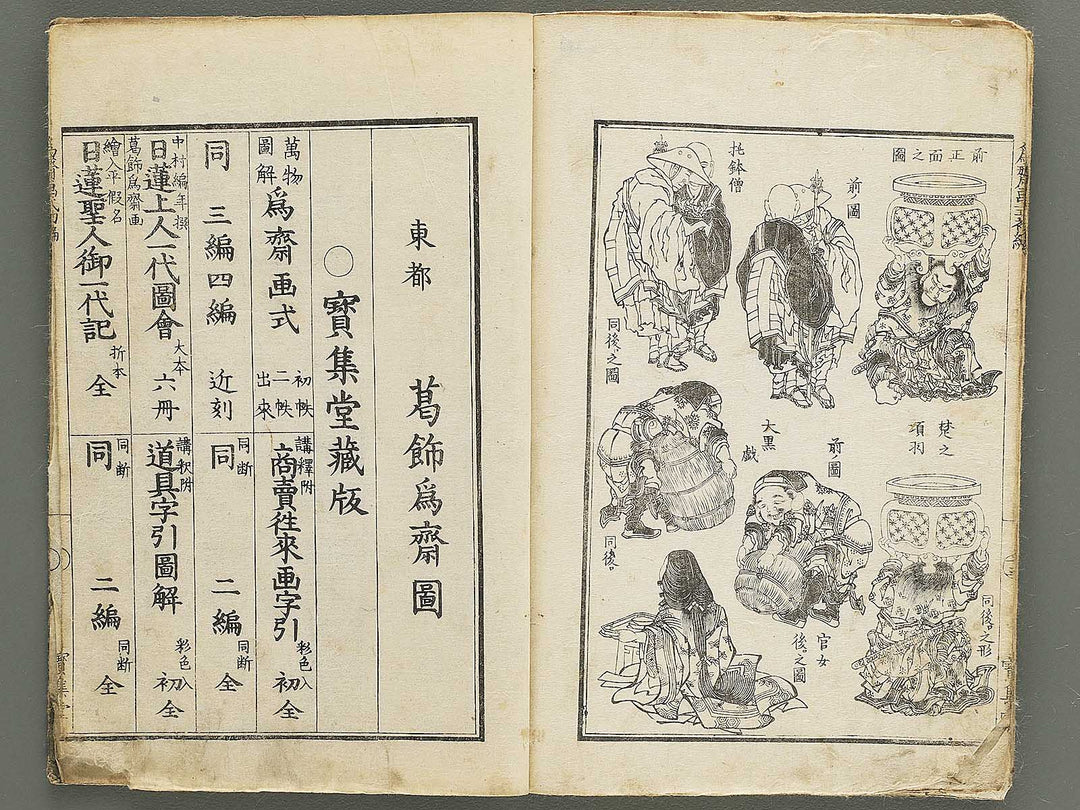 前正面之圖
楚之
項羽
同後之形
前ノ圖
托鉢僧
同後之圖
前ノ圖
大黒
戯
同後
官女
後之圖
東都
葛飾為齋圖
〇寶集堂藏版
萬物
圖解
為齋画式
初帙
二帙
出来
講釋附
商賣徃來画字引
彩色入
初全
同三編四編近刻
同断
同二編
同断
全
中村編年撰
葛飾為齋画
日蓮上人一代圖會
大本
六冊
講釈附
道具字引圖解
彩色入
初全
繪入平假名
日蓮聖人御一代記
折本
全
同断
同二編
同断
全